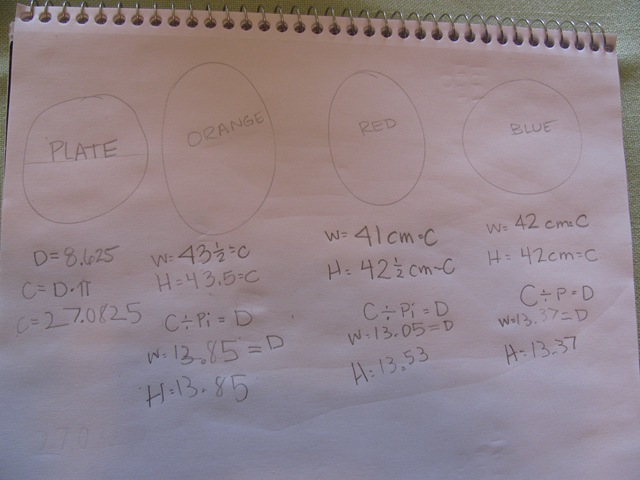 PLATE
D=8.625
C=D·π
C=27.0825
ORANGE
W=43½=C
H=43.5=C
C÷Pi=D
W=13.85=D
H=13.85
RED
W=41cm=C
H=42½cm=C
C÷Pi=D
W=13.05=D
H=13.53
BLUE
W=42cm=C
H=42cm=C
C÷P=D
W=13.37=D
H=13.37